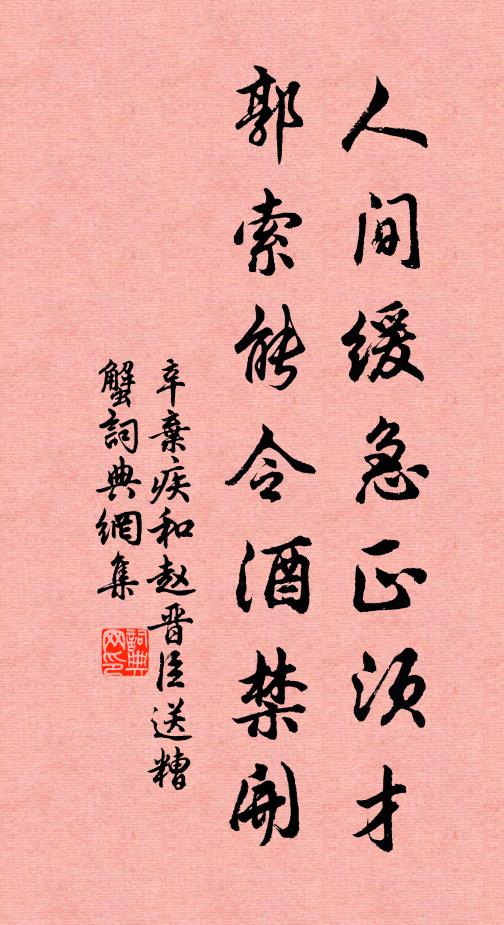 人间缓急正须才
郭索能令酒禁开
辛棄疾和赵晋臣送糟
蟹詞典網集
詞典网印